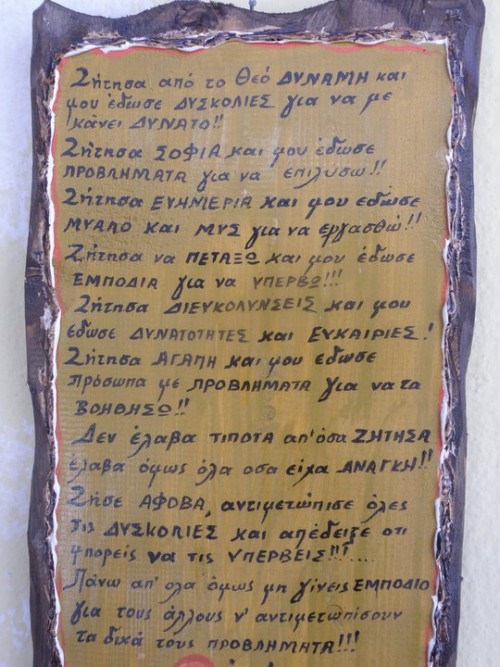 Ζήτησα από το Θεό ΔΥΝΑΜΗ και
μου έδωσε ΔΥΣΚΟΛΙΕΣ για να με
κάνει ΔΥΝΑΤΟ!!
Ζήτησα ΣΟΦΙΑ και μου έδωσε
ΠΡΟΒΛΗΜΑΤΑ για να επιλύσω!!
Ζήτησα ΕΥΗΜΕΡΙΑ και μου έδωσε
ΜΥΑΛΟ και ΜΥΣ για να εργασθώ!!
Ζήτησα να ΠΕΤΑΞΩ και μου έδωσε
ΕΜΠΟΔΙΑ για να ΥΠΕΡΒΩ!!!
Ζήτησα ΔΙΕΥΚΟΛΥΝΣΕΙΣ και μου
έδωσε ΔΥΝΑΤΟΤΗΤΕΣ και ΕΥΚΑΙΡΙΕΣ!
Ζήτησα ΑΓΑΠΗ και μου έδωσε
πρόσωπα με ΠΡΟΒΛΗΜΑΤΑ για να τα
ΒΟΗΘΗΣΩ!!
Δεν έλαβα ΤΙΠΟΤΑ απ' όσα ΖΗΤΗΣΑ
έλαβα όμως όλα οσα είχα ΑΝΑΓΚΗ!!
Ζήσε ΑΦΟΒΑ, αντιμετώπισε όλες
τις ΔΥΣΚΟΛΙΕΣ και απέδειξε οτι
μπορείς να τις ΥΠΕΡΒΕΙΣ!!!....
Πάνω απ' ολα όμως μη γίνεις ΕΜΠΟΔΙΟ
για τους άλλους ν' αντιμετωπίσουν
τα δικά τους ΠΡΟΒΛΗΜΑΤΑ!!!